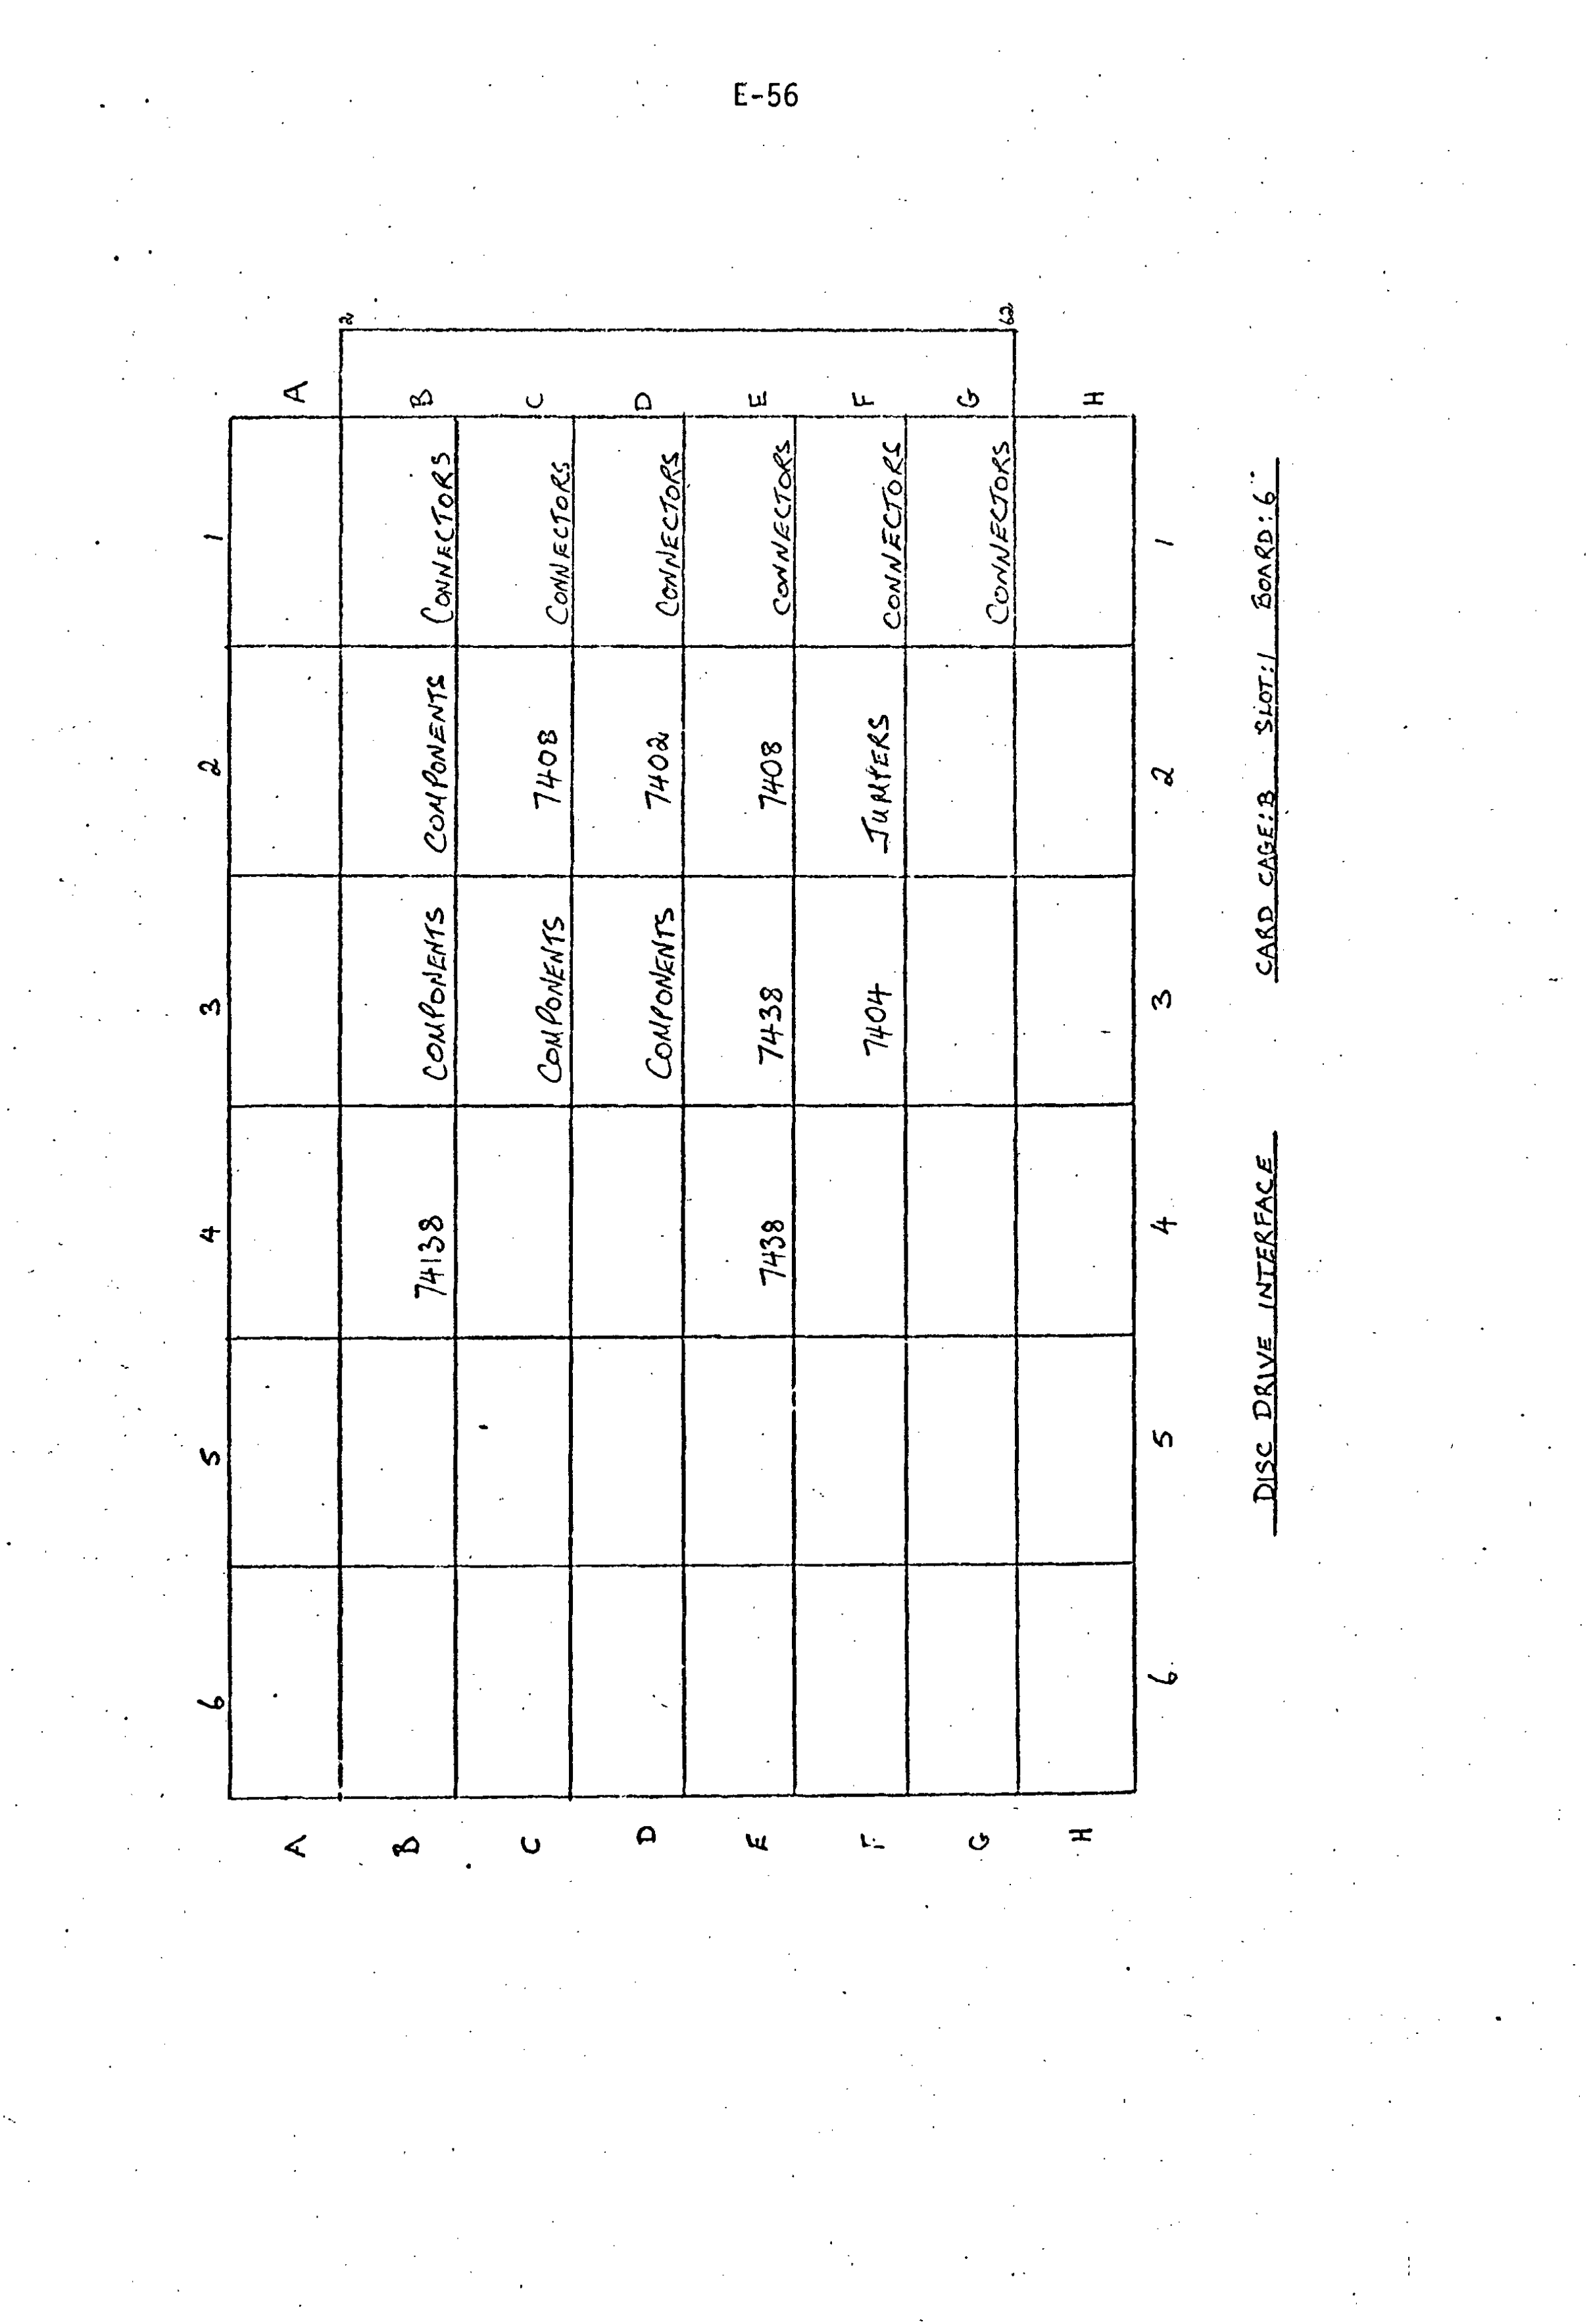 E-56
6 5 4 3 2 1
A A
2
B 74138 COMPONENTS COMPONENTS CONNECTORS B
C COMPONENTS 7408 CONNECTORS C
D COMPONENTS 7402 CONNECTORS D
E 7438 7438 7408 CONNECTORS E
F 7404 JUMPERS CONNECTORS F
G CONNECTORS G
62
H H
6 5 4 3 2 1
DISC DRIVE INTERFACE CARD CAGE:B SLOT:1 BOARD:6